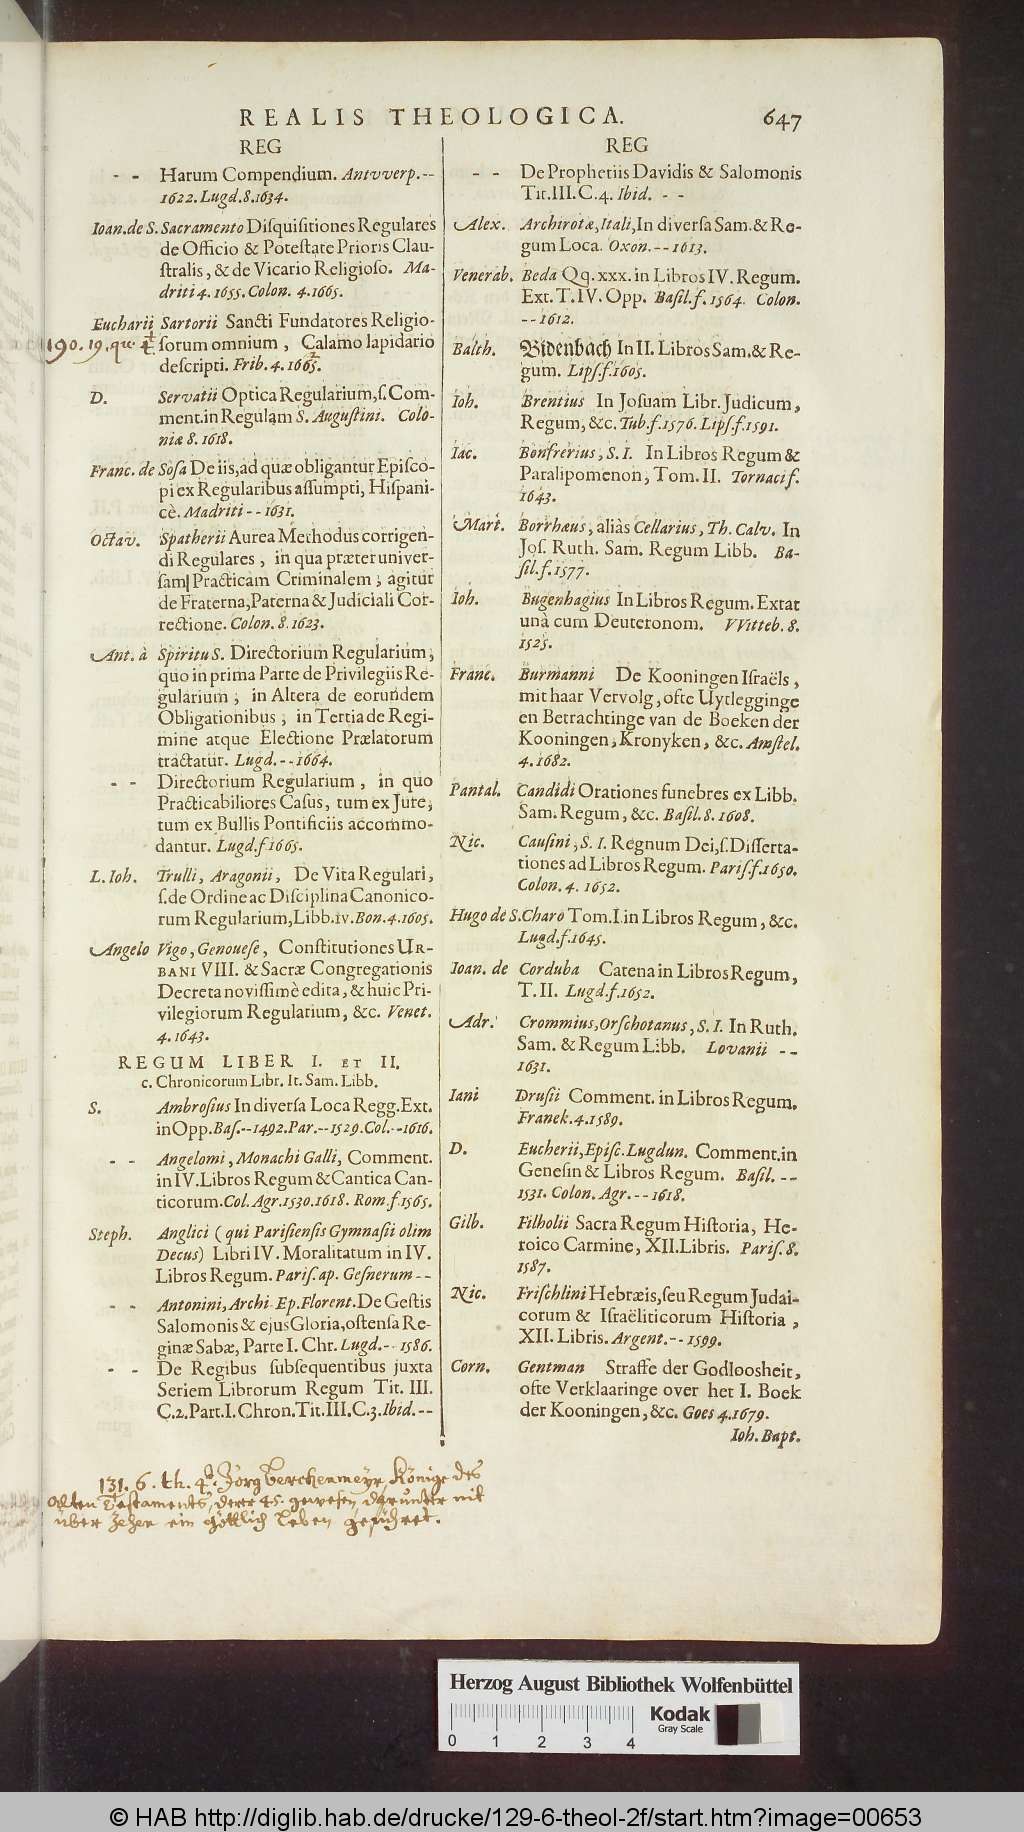 REALIS THEOLOGICA. 647
REG
- - Harum Compendium. Antvverp.--
1622. Lugd.8.1634.
Ioan.de S. Sacramento Disquisitiones Regulares
de Officio & Potestate Prioris Clau-
stralis, & de Vicario Religioso. Ma-
driti 4. 1655. Colon. 4.1665.
Eucharii Sartorii Sancti Fundatores Religio-
190. 19. qu. 4 sorum omnium, Calamo lapidario
descripti. Frib. 4. 1665.
D. Servatii Optica Regularium, s. Com-
ment.in Regulam S. Augustini. Colo-
niæ 8. 1618.
Franc. de Sosa De iis, ad quæ obligantur Episco-
pi ex Regularibus assumpti, Hispani-
cè. Madriti -- 1631.
Octav. Spatherii Aurea Methodus corrigen-
di Regulares, in qua præter univer-
sam Practicam Criminalem, agitur
de Fraterna, Paterna & Judiciali Cor-
rectione. Colon. 8. 1623.
Ant. à Spiritu S. Directorium Regularium,
quo in prima Parte de Privilegiis Re-
gularium, in Altera de eorundem
Obligationibus, in Tertia de Regi-
mine atque Electione Prælatorum
tractatur. Lugd. -- 1664.
- - Directorium Regularium, in quo
Practicabiliores Casus, tum ex Jure,
tum ex Bullis Pontificiis accommo-
dantur. Lugd.f 1665.
L. Ioh. Trulli, Aragonii, De Vita Regulari,
s.de Ordine ac Disciplina Canonico-
rum Regularium, Libb.iv. Bon.4.1605.
Angelo Vigo, Genouese, Constitutiones UR-
BANI VIII. & Sacræ Congregationis
Decreta novissimè edita, & huic Pri-
vilegiorum Regularium, &c. Venet.
4. 1643.
REGUM LIBER I. ET II.
c. Chronicorum Libr. It. Sam. Libb.
S. Ambrosius In diversa Loca Regg. Ext.
in Opp. Bas.--1492. Par.--1529. Col.--1616.
- - Angelomi, Monachi Galli, Comment.
in IV. Libros Regum & Cantica Can-
ticorum. Col. Agr.1530.1618. Rom.f.1565.
Steph. Anglici (qui Parisiensis Gymnasii olim
Decus) Libri IV. Moralitatum in IV.
Libros Regum. Paris. ap. Gesnerum --
- - Antonini, Archi-Ep. Florent. De Gestis
Salomonis & ejus Gloria, ostensa Re-
ginæ Sabæ, Parte I. Chr. Lugd. -- 1586.
- - De Regibus subsequentibus juxta
Seriem Librorum Regum Tit. III.
C.2. Part. I. Chron. Tit. III. C.3. Ibid. --
REG
- - De Prophetiis Davidis & Salomonis
Tit. III. C. 4. Ibid. - -
Alex. Archirotæ, Itali, In diversa Sam. & Re-
gum Loca. Oxon. -- 1613.
Venerab. Beda Qq. xxx. in Libros IV. Regum.
Ext. T. IV. Opp. Basil. f. 1564. Colon.
-- 1612.
Balth. Bidenbach In II. Libros Sam. & Re-
gum. Lips. f. 1605.
Ioh. Brentius In Josuam Libr. Judicum,
Regum, &c. Tub. f. 1576. Lips. f. 1591.
Iac. Bonfrerius, S. I. In Libros Regum &
Paralipomenon, Tom. II. Tornaci f.
1643.
Mart. Borrhæus, aliàs Cellarius, Th. Calv. In
Jos. Ruth. Sam. Regum Libb. Ba-
sil. f. 1577.
Ioh. Bugenhagius In Libros Regum. Extat
unà cum Deuteronom. VVitteb. 8.
1525.
Franc. Burmanni De Kooningen Israëls,
mit haar Vervolg, ofte Uytlegginge
en Betrachtinge van de Boeken der
Kooningen, Kronyken, &c. Amstel.
4. 1682.
Pantal. Candidi Orationes funebres ex Libb.
Sam. Regum, &c. Basil. 8. 1608.
Nic. Causini, S. I. Regnum Dei, s. Disserta-
tiones ad Libros Regum. Paris. f. 1650.
Colon. 4. 1652.
Hugo de S. Charo Tom. I. in Libros Regum, &c.
Lugd. f. 1645.
Ioan. de Corduba Catena in Libros Regum,
T. II. Lugd. f. 1652.
Adr. Crommius, Orschotanus, S. I. In Ruth.
Sam. & Regum Libb. Lovanii --
1631.
Iani Drusii Comment. in Libros Regum.
Franek. 4. 1589.
D. Eucherii, Episc. Lugdun. Comment. in
Genesin & Libros Regum. Basil. --
1531. Colon. Agr. -- 1618.
Gilb. Filholii Sacra Regum Historia, He-
roico Carmine, XII. Libris. Paris. 8.
1587.
Nic. Frischlini Hebræis, seu Regum Judai-
corum & Israëliticorum Historia,
XII. Libris. Argent. -- 1599.
Corn. Gentman Straffe der Godloosheit,
ofte Verklaaringe over het I. Boek
der Kooningen, &c. Goes 4. 1679.
Ioh. Bapt.
131. 6. th. 4. Jörg Berchenmeyr, Könige des
Alten Testaments, derer 45. gewesen, darunter nit
über Zehen ein göttlich Leben geführet.
Herzog August Bibliothek Wolfenbüttel
0 1 2 3 4
Kodak
Gray Scale
© HAB http://diglib.hab.de/drucke/129-6-theol-2f/start.htm?image=00653